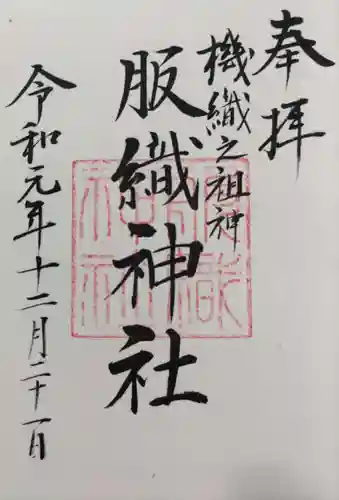 奉拝
機織之祖神
服織神社
令和元年十二月二十一日